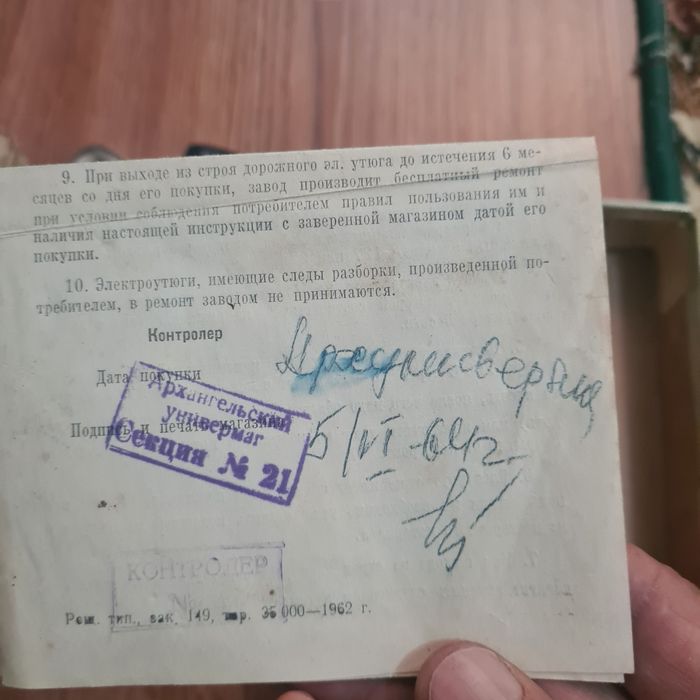 9. При выходе из строя дорожного эл. утюга до истечения 6 ме-
сяцев со дня его покупки, завод производит бесплатный ремонт
при условии соблюдения потребителем правил пользования им и
наличия настоящей инструкции с заверенной магазином датой его
покупки.
10. Электроутюги, имеющие следы разборки, произведенной по-
требителем, в ремонт заводом не принимаются.
Контролер
Дата покупки
Архунивермаг
Подпись и печать магазина
5/VI-64г
Архангельский
универмаг
Секция № 21
КОНТРОЛЕР
№
тип., зак. 149, тир. 35 000—1962 г.